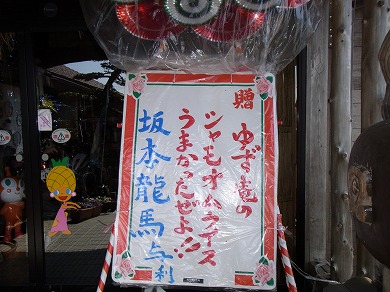 贈 ゆず庵の
シャモオムライス
うまかったぜよ!!
坂本龍馬与利